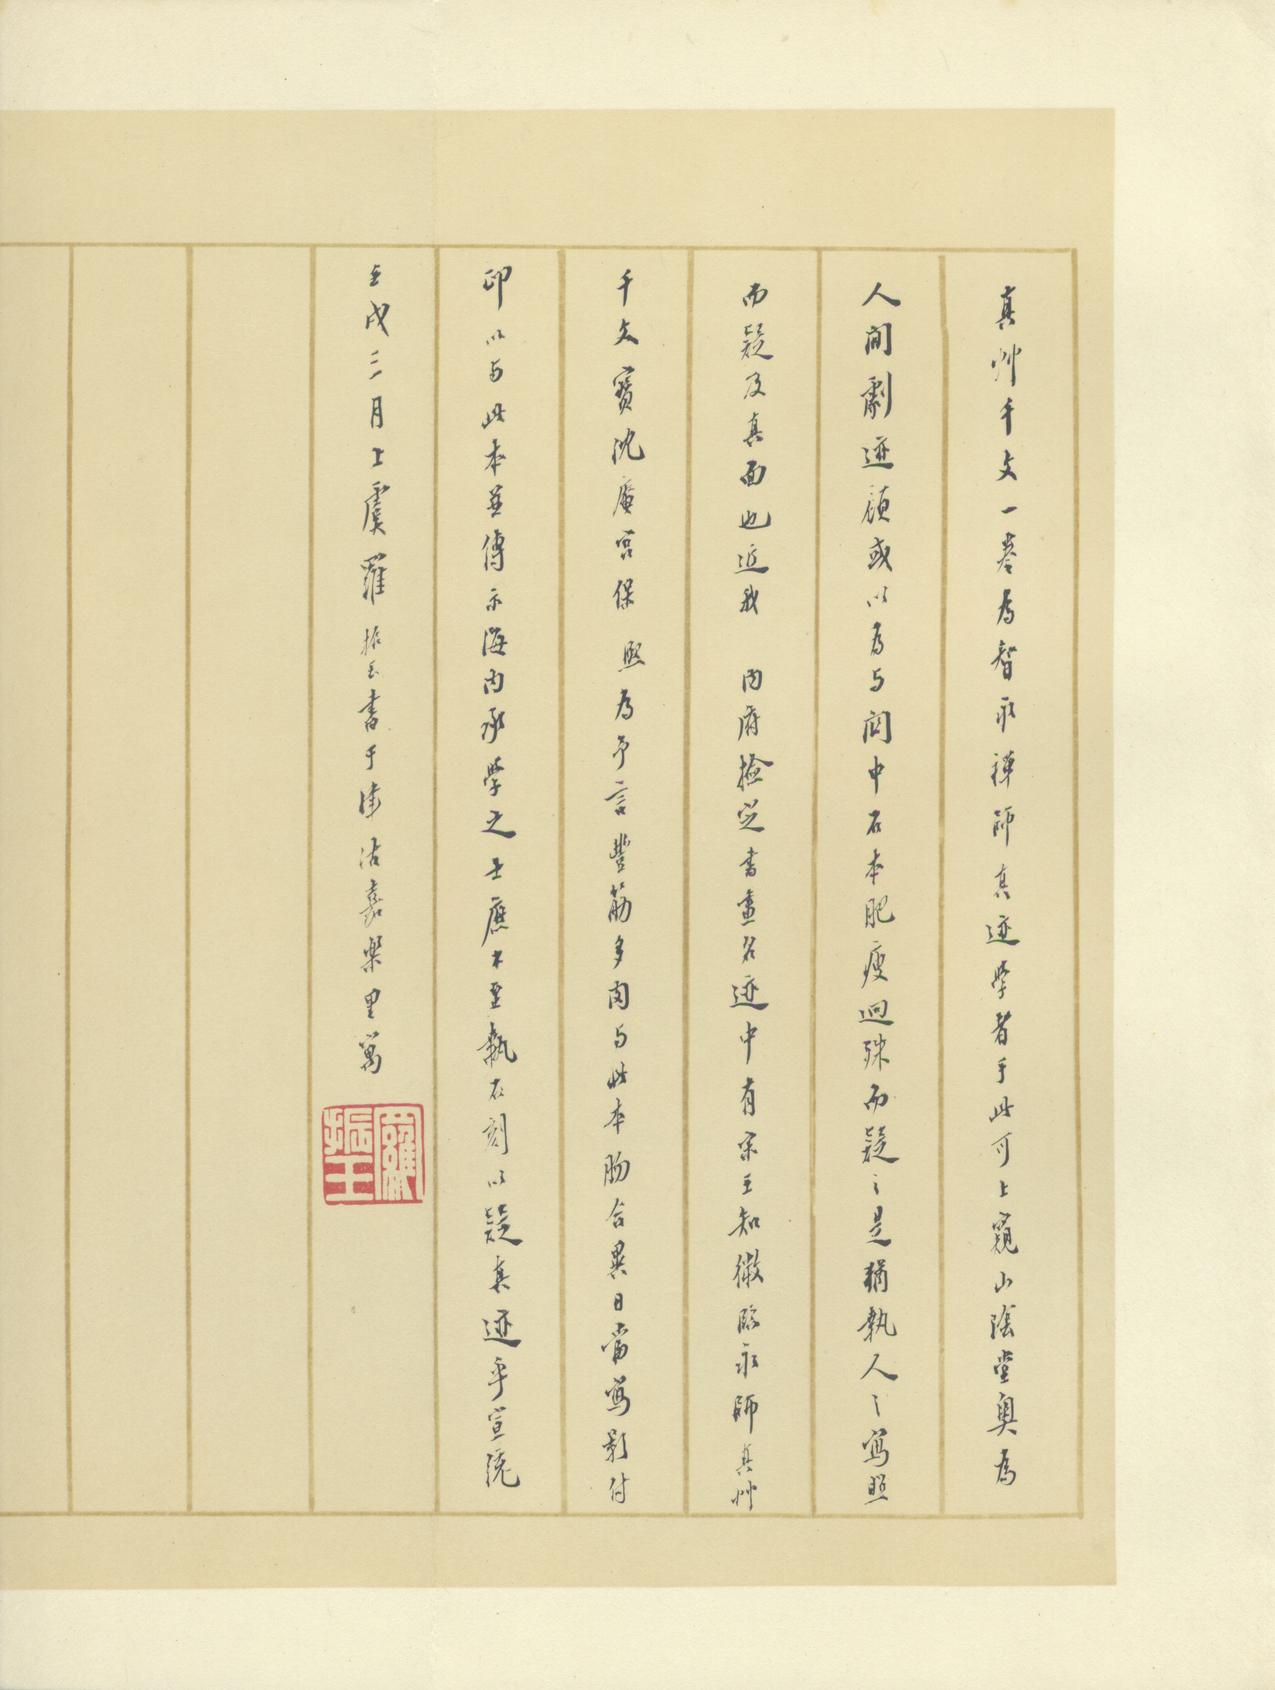 真艸千文一卷為智永禪師真迹學者于此可上窺山陰堂奧為
人間劇迹顧或以為与關中石本肥瘦迥殊而疑之是猶執人之寫照
而疑及真面也近我 內府撿定書畫名迹中有宋王知微臨永師真艸
千文寶沈盦宮保熙為予言豐筋多肉与此本吻合異日當寫影付
印以与此本並傳示海內承學之士應不至執石刻以疑真迹乎宣統
壬戌三月上虞羅振玉書于津沽嘉樂里寓
羅振玉